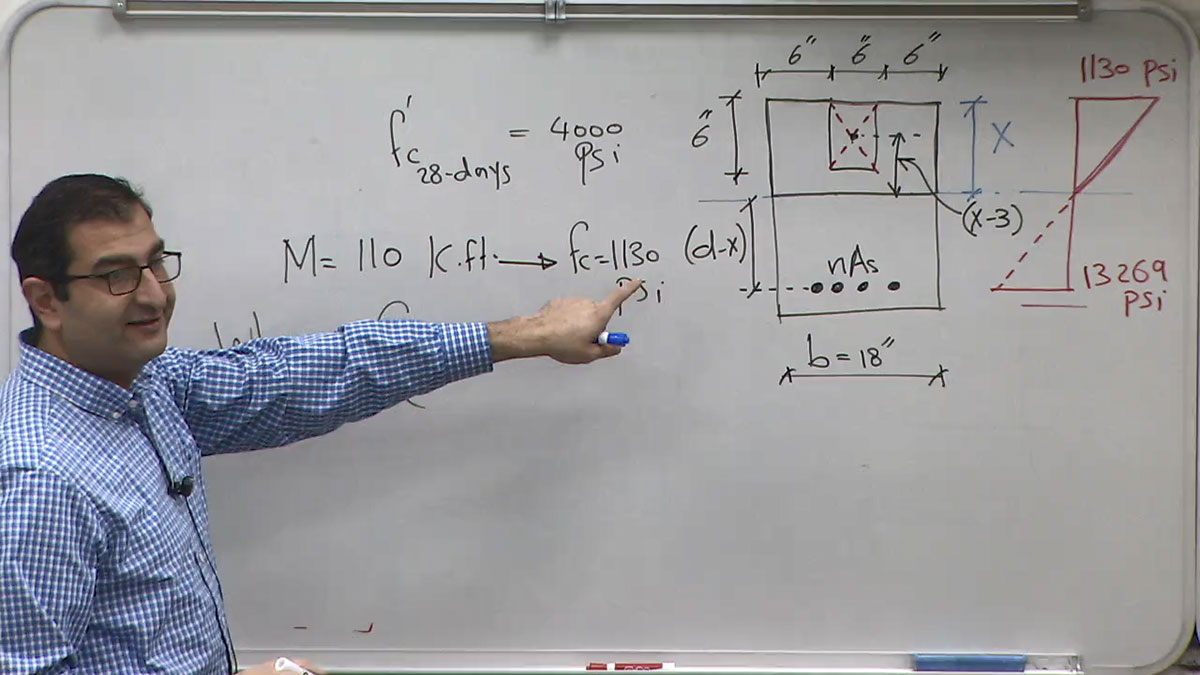 f'c 28-days = 4000 psi
M= 110 K.ft. → fc=1130 psi
6" 6" 6"
6"
X
(x-3)
(d-x)
nAs
b=18"
1130 psi
13269 psi